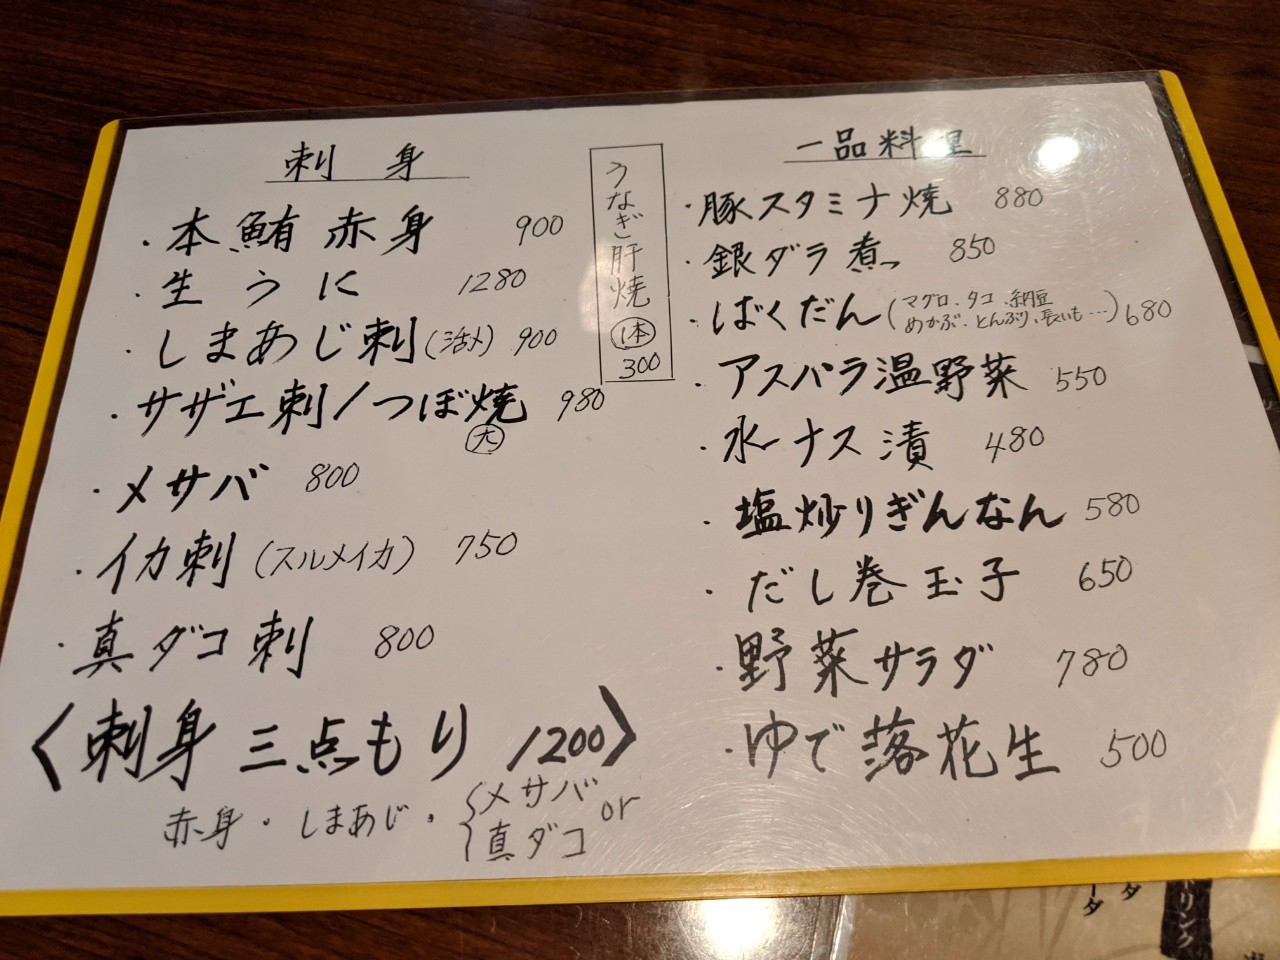 刺身
・本鮪赤身 900
・生うに 1280
・しまあじ刺(活〆) 900
・サザエ刺/つぼ焼 980
大
・メサバ 800
・イカ刺(スルメイカ) 750
・真ダコ刺 800
〈刺身三点もり 1200〉
赤身・しまあじ・{メサバ or
真ダコ
うなぎ肝焼
1本
300
一品料理
・豚スタミナ焼 880
・銀ダラ煮つ 850
・ばくだん(マグロ、タコ、納豆
めかぶ、とんぶり、長いも…) 680
・アスパラ温野菜 550
・水ナス漬 480
・塩炒りぎんなん 580
・だし巻玉子 650
・野菜サラダ 780
・ゆで落花生 500
リンク